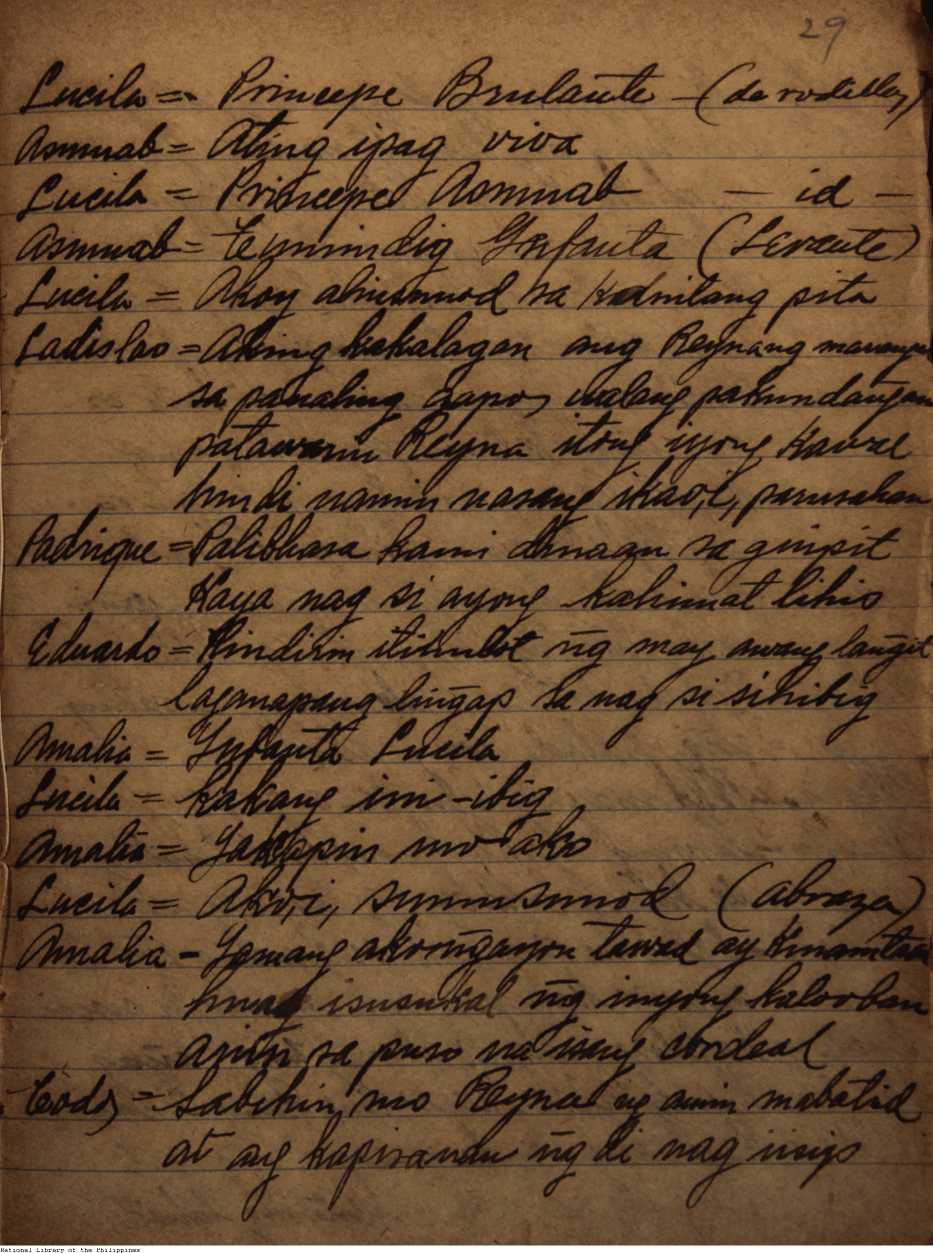 29
Lucila = Princepe Brulante - (de rodillas)
Asmuab = Ating ipag viva
Lucila = Princepe Asmuab - id -
Asmuab = Tumindig Ynfanta (Levante)
Lucila = Akoy alinsunod sa kanilang pita
Ladislao = Ating kakalagan ang Reynang
sa panaling gapos walang pakundangan
patawarin Reyna itong iyong kawal
hindi namin nasang ikao,i, parusahan
Padrique = Palibhasa kami dinaan sa ginpit
Kaya nag si ayong kahimat lihis
Eduardo = Hindirin itinulot ñg may awang lañgit
laganapang liñgap sa nag si sihibig
Amalia = Ynfanta Lucila
Lucila = Kakang ini-ibig
Amalia = Yakapin mo ako
Lucila = Ako,i, sumusunod (abraza)
Amalia - Yamang akoñgayon tawad ay
huag isusukal ñg inyong kalooban
ariin sa puso na isang cordeal
Todos = Sabihin mo Reyna ñg amin mabatid
at ang kapisanan ñg di nag iisip
National Library of the Philippines